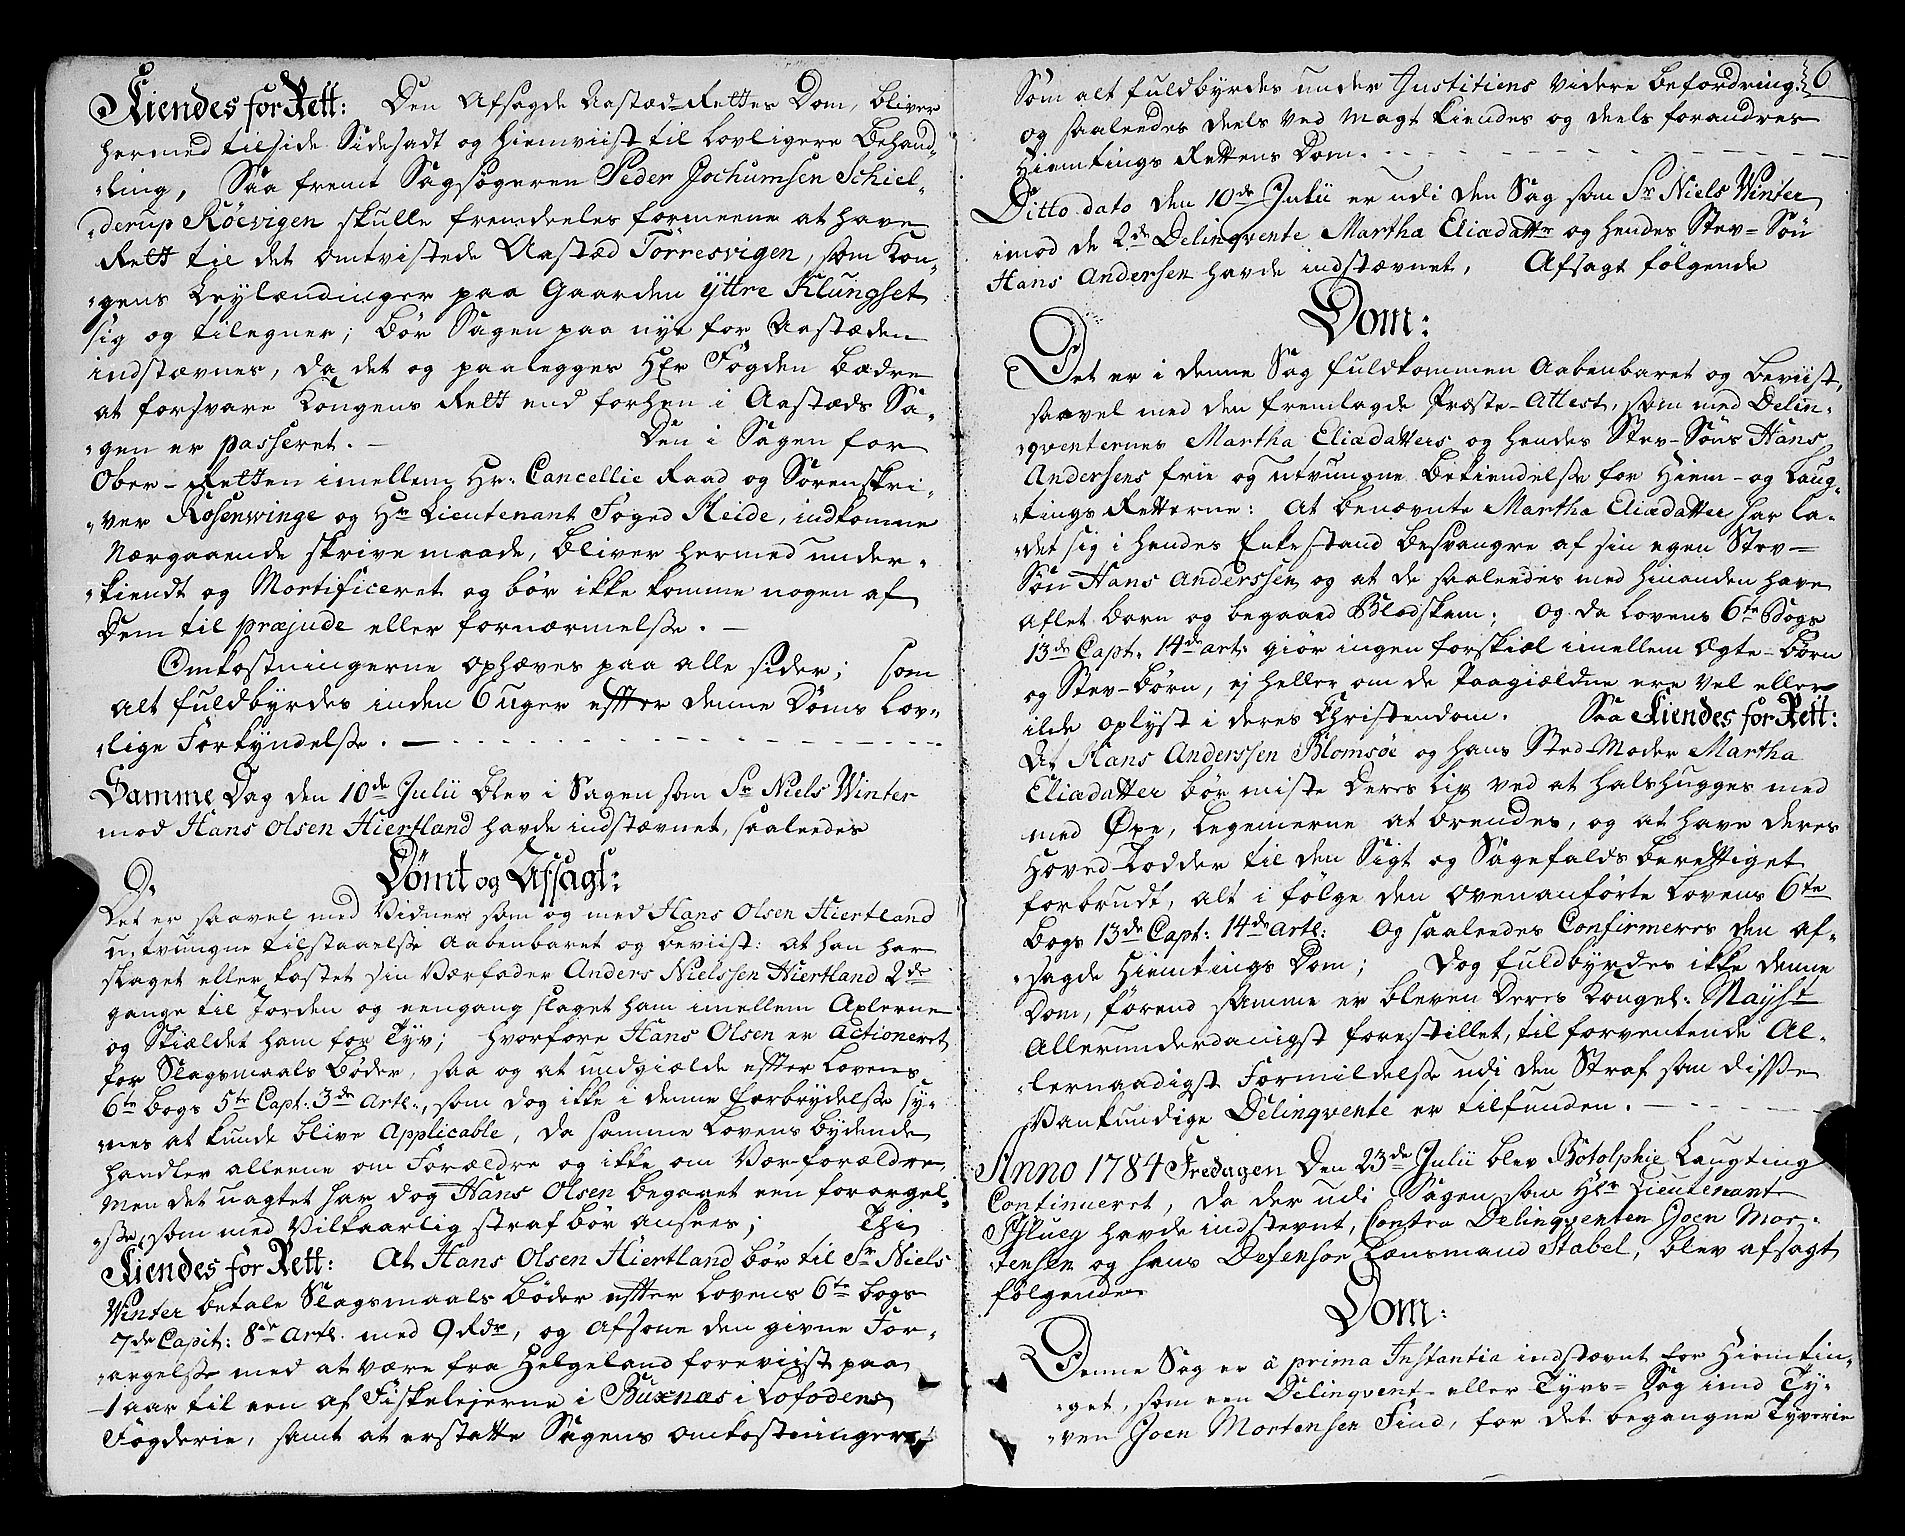 Kiendes for Rett: Den Afsagde Aastæd-Rettes Dom, bliver
hermed tilside Sidesadt og hiemviist til lovligere Behand-
-ling, Saa fremt Sagsøgeren Peder Jochumsen Schiel-
-derup Röevigen skulle fremdeeles formeene at have
Rett til det omtvistede Aastæd Törresvigen, som Kon-
-gens Leylændinger paa Gaarden yttre Klungset
sig og tilegner; bör Sagen paa nye for Aastæden
indstævnes, da det og paalegges Hr Fogden bædre
at forsvare Kongens Rett end forhen i Aastæds Sa-
-gen er passeret. — Den i Sagen for
Ober-Retten imellem Hr: Cancellie Raad og Sorenskri-
-ver Rosenwinge og Hr Lieutenant Foged Heide, indkomne
Nærgaaende skrivemaade, bliver hermed under-
-kiendt og Mortificeret og bör ikke komme nogen af
Dem til præjude eller fornærmelsse. —
Omkostningerne ophæves paa alle sider; som
alt fuldbyrdes inden 6 uger effter denne Doms lov-
-lige Forkyndelsse. —
Samme Dag den 10de Julii blev i Sagen som Sr Niels Winter
mod Hans Olsen Hiertland havde indstævnet, saaleedes
Dömt og Afsagt:
Det er saavel med Vidner som og med Hans Olsen Hiertland
u-tvungne tilstaaelsse aabenbaret og beviist: at han har
slaget eller kastet sin Værfader Anders Nielssen Hiertland 2de
gange til Jorden og eengang slaget ham imellem Axlerne
og Skiældet ham for Tyv; hvorfore Hans Olsen er actioneret
for Slagsmaals Böder, saa og at undgiælde effter Lovens
6te bogs 5te Capt: 3de Artl:, som dog ikke i denne Forbrydelsse sy-
-nes at kunde blive applicable, da samme Lovens bydende
handler alleene om Forældre og ikke om Vær-forældre,
men det uagtet har dog Hans Olsen begaaet een forargel-
-sse, som med Vilkaarlig straf bör ansees; Thi
Kiendes for Rett: At Hans Olsen Hiertland bör til Sr Niels
Winter betale Slagsmaals böder effter Lovens 6te bogs
7de Capit: 8de Artl. med 9 Rdr, og afsone den givne For-
-argelsse med at være fra Helgeland foreviist paa
1 aar til een af Fiskelejerne i Buxnæs i Lofodens
Fögderie, samt at erstatte Sagens omkostninger,
6
Som alt fuldbyrdes under Justitiens videre befordring:
og saaleedes deels ved magt kiendes og deels forandres
Hiemtings Rettens Dom.
Ditto dato den 10de Julii er udi den Sag som Sr Niels Winter
imod de 2de Delinqvente Martha Eliædattr og hendes Stev-Sön
Hans Andersen havde indstævnet, Afsagt fölgende
Dom:
Det er i denne Sag fuldkommen Aabenbaret og beviist,
saavel med den fremlagde Præste-Attest, som med Delin-
-qventernes Martha Eliædatters og hendes Stev-Söns Hans
Andersens frie og utvungne bekiendelsse for Hiem- og Laug-
-tings Retterne: At benævnte Martha Eliædatter har la-
-det sig i hendes Enkestand besvangre af sin egen Stev-
Sön Hans Anderssen og at de saaleedes med hinanden have
aflet barn og begaaed Blodskam; og da Lovens 6te Bogs
13de Capt: 14de art: giör ingen forskiæl imellem Ægte-börn
og Stev-börn, ej heller om de Paagiældne ere vel eller
ilde oplyst i deres Christendom. Saa Kiendes for Rett:
At Hans Anderssen Blomsöe og hans Sted-Moder Martha
Eliædatter bör miste deres lix ved at halshugges med
med Öxe, legemerne at brendes, og at have deres
Hoved-Lodder til den Sigt og Sagefalds berettiget
forbrudt, alt i fölge den ovenanförte Lovens 6te
bogs 13de Capt: 14de artl: Og saaleedes Confirmeres den af-
-sagde Hiemtings Dom; Dog fuldbyrdes ikke denne
Dom, förend samme er bleven deres Kongel: Mayst
Allerunderdanigst forestillet, til forventende Al-
-lernaadigst Formildelsse udi den Straf som disse
Vankundige Delinqvente er tilfunden. —
Anno 1784 Fredagen Den 23de Julii blev Botolphie Laugting
Continueret, da der udi Sagen som Hr Lieutenant
havde indstevnt, Contra Delinqventen Joen Mor-
-tensen og hans Defensor Lænsmand Stabel, blev afsagt
fölgende
Dom:
Denne Sag er à prima Instantia indstævnt for Hiemtin-
-get, som een Delinqvent- eller Tyvs-Sag imod Ty-
-ven Joen Mortensen Find, for det begangne Tyverie